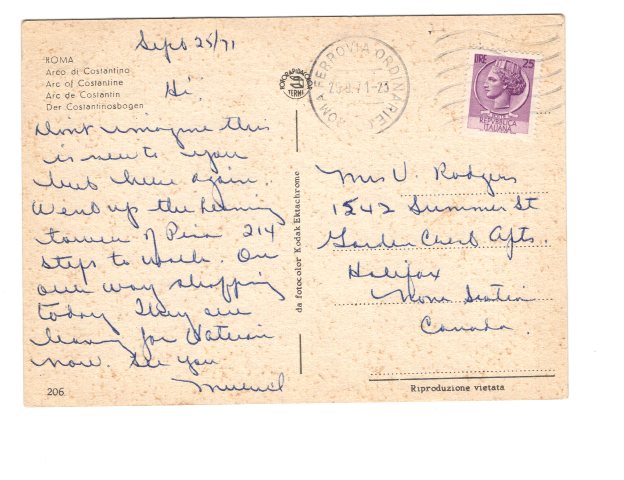 Sept 25/71
ROMA
Arco di Costantino
Arc of Costantine
Arc de Costantin
Der Costantinosbogen
Hi.
Dont imagine this
is new to you
but here again.
Went up the leaning
tower of Pisa 214
steps to walk. On
our way shopping
today They are
leaving for Vatican
now. See you
206
FOTORAPIDACOLOR
TERNI
da fotocolor Kodak Ektachrome
ROMA FERROVIA ORDINARIE
71-23
LIRE 25
REPUBBLICA
ITALIANA
Mrs V. Rodgers
1542 Summer St
Garden Crest Apts.
Halifax
Nova Scotia
Canada.
Riproduzione vietata